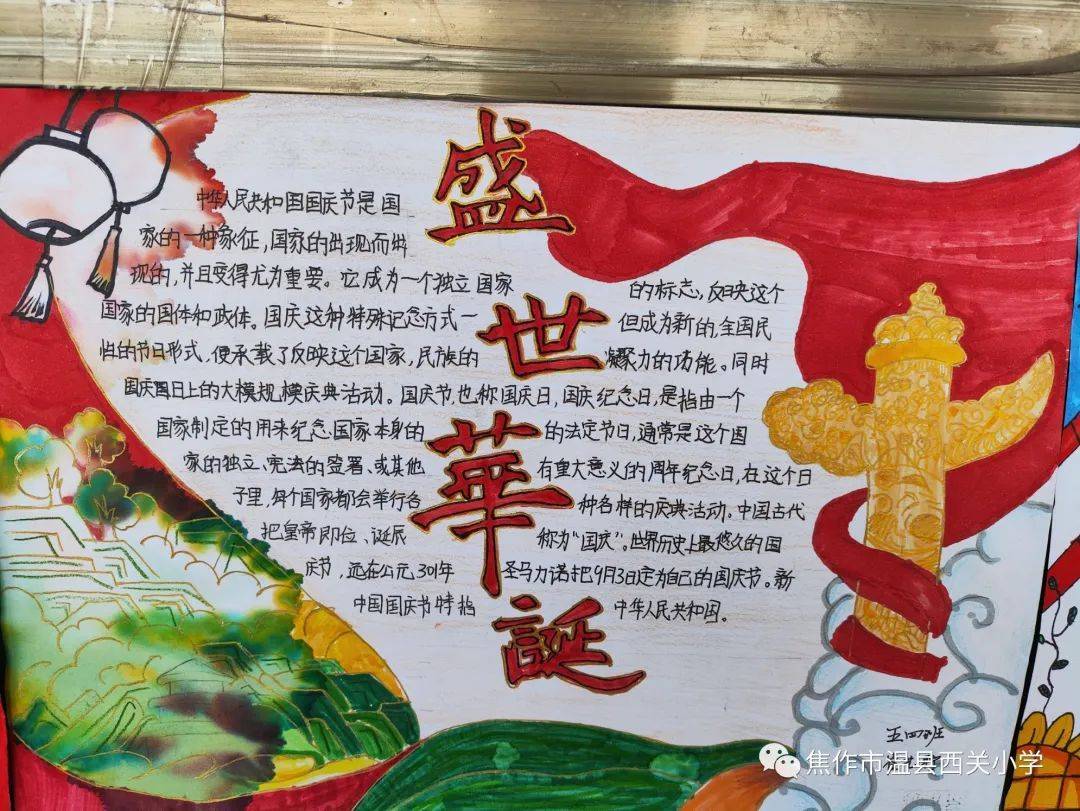 盛世華誕
中华人民共和国国庆节是国
家的一种象征,国家的出现而出
现的,并且变得尤为重要。它成为一个独立国家的标志,反映这个
国家的国体和政体。国庆这种特殊记念方式一但成为新的,全国民
性的节日形式,便承载了反映这个国家,民族的凝聚力的功能。同时
国庆国日上的大模规模庆典活动。国庆节也称国庆日,国庆纪念日,是指由一个
国家制定的用来纪念国家本身的的法定节日,通常是这个国
家的独立、宪法的签署、或其他有重大意义的周年纪念日,在这个日
子里,每个国家都会举行各种各样的庆典活动。中国古代
把皇帝即位、诞辰称为“国庆”。世界历史上最悠久的国
庆节,远在公元301年圣马力诺把9月3日定为自己的国庆节。新
中国国庆节特指中华人民共和国。
五四班
焦作市温县西关小学